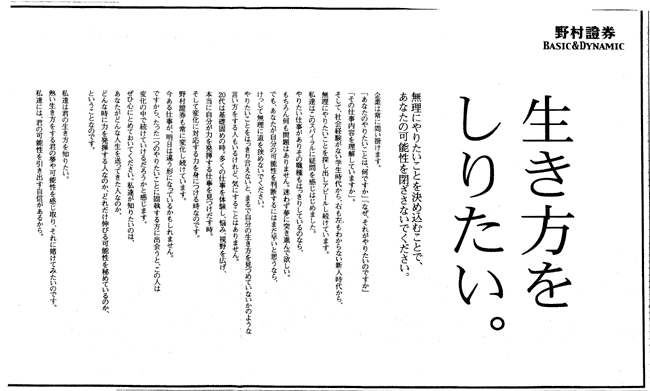 野村證券
BASIC&DYNAMIC
生き方を
しりたい。
無理にやりたいことを決め込むことで、
あなたの可能性を閉ざさないでください。
企業は常に問い掛けます。
「あなたのやりたいことは、何ですか」「なぜ、それがやりたいのですか」
「その仕事内容を理解していますか」。
そして、社会経験がない学生時代から、右も左もわからない新人時代から、
無理にやりたいことを探し出しアピールし続けています。
私達はこのスパイラルに疑問を感じはじめました。
やりたい仕事がありその職種もはっきりしているのなら、
もちろん何も問題はありません。迷わず夢に突き進んで欲しい。
でも、あなたが自分の可能性を判断するにはまだ早いと思うなら、
けっして無理に道を狭めないでください。
やりたいことをはっきり言えないと、まるで自分の生き方を見つめていないかのような
言い方をする人もいるけれど、気にすることはありません。
20代は基礎固めの時。多くの仕事を体験し、悩み、視野を広げ、
本当に自分が力を発揮する仕事を見つけだす時。
そして変化に対応する力を身につける時なのです。
野村證券も常に変化し続けています。
今ある仕事が、明日は違う形になっているかもしれません。
ですから、たった一つのやりたいことに固執する方に出会うと、この人は
変化の中で続けていけるだろうかと感じます。
ぜひ心にとめておいてください。私達が知りたいのは、
あなたがどんな人生を送ってきた人なのか、
どんな時に力を発揮する人なのか、どれだけ伸びる可能性を秘めているのか、
ということなのです。
私達は君の生き方を知りたい。
熱い生き方をする君の夢や可能性を感じ取り、それに賭けてみたいのです。
私達には、君の可能性を引き出す自信があるから。